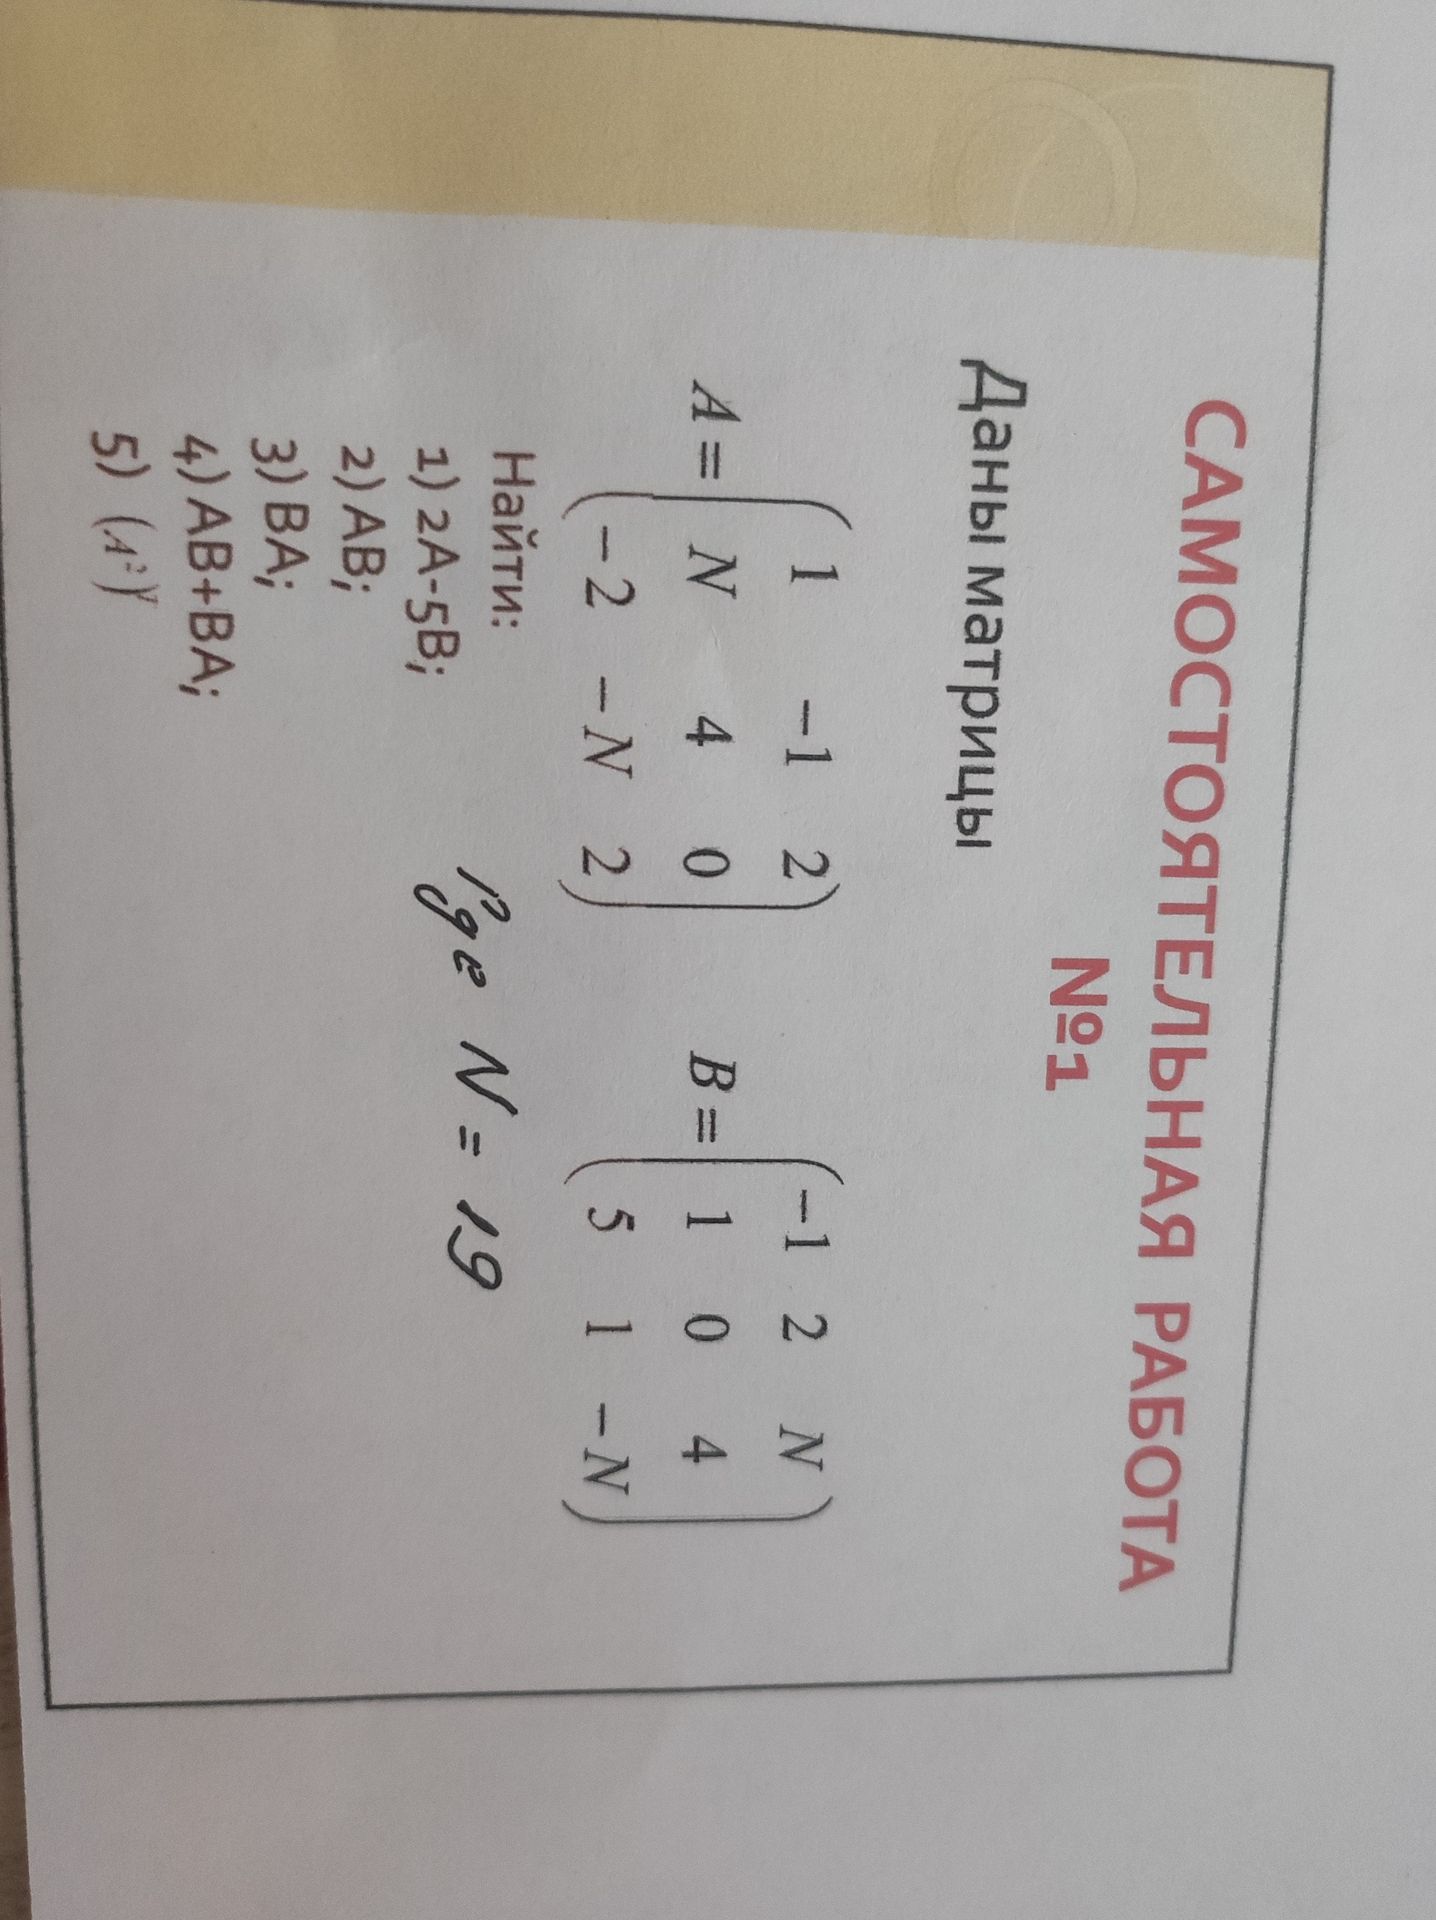 САМОСТОЯТЕЛЬНАЯ РАБОТА
№1
Даны матрицы
A = ( 1 −1 2 ; N 4 0 ; −2 −N 2 ) B = ( −1 2 N ; 1 0 4 ; 5 1 −N )
Найти:
1) 2А-5В;
2) АВ;
3) ВА;
4) АВ+ВА;
5) (A²)ᵀ
где N = 19